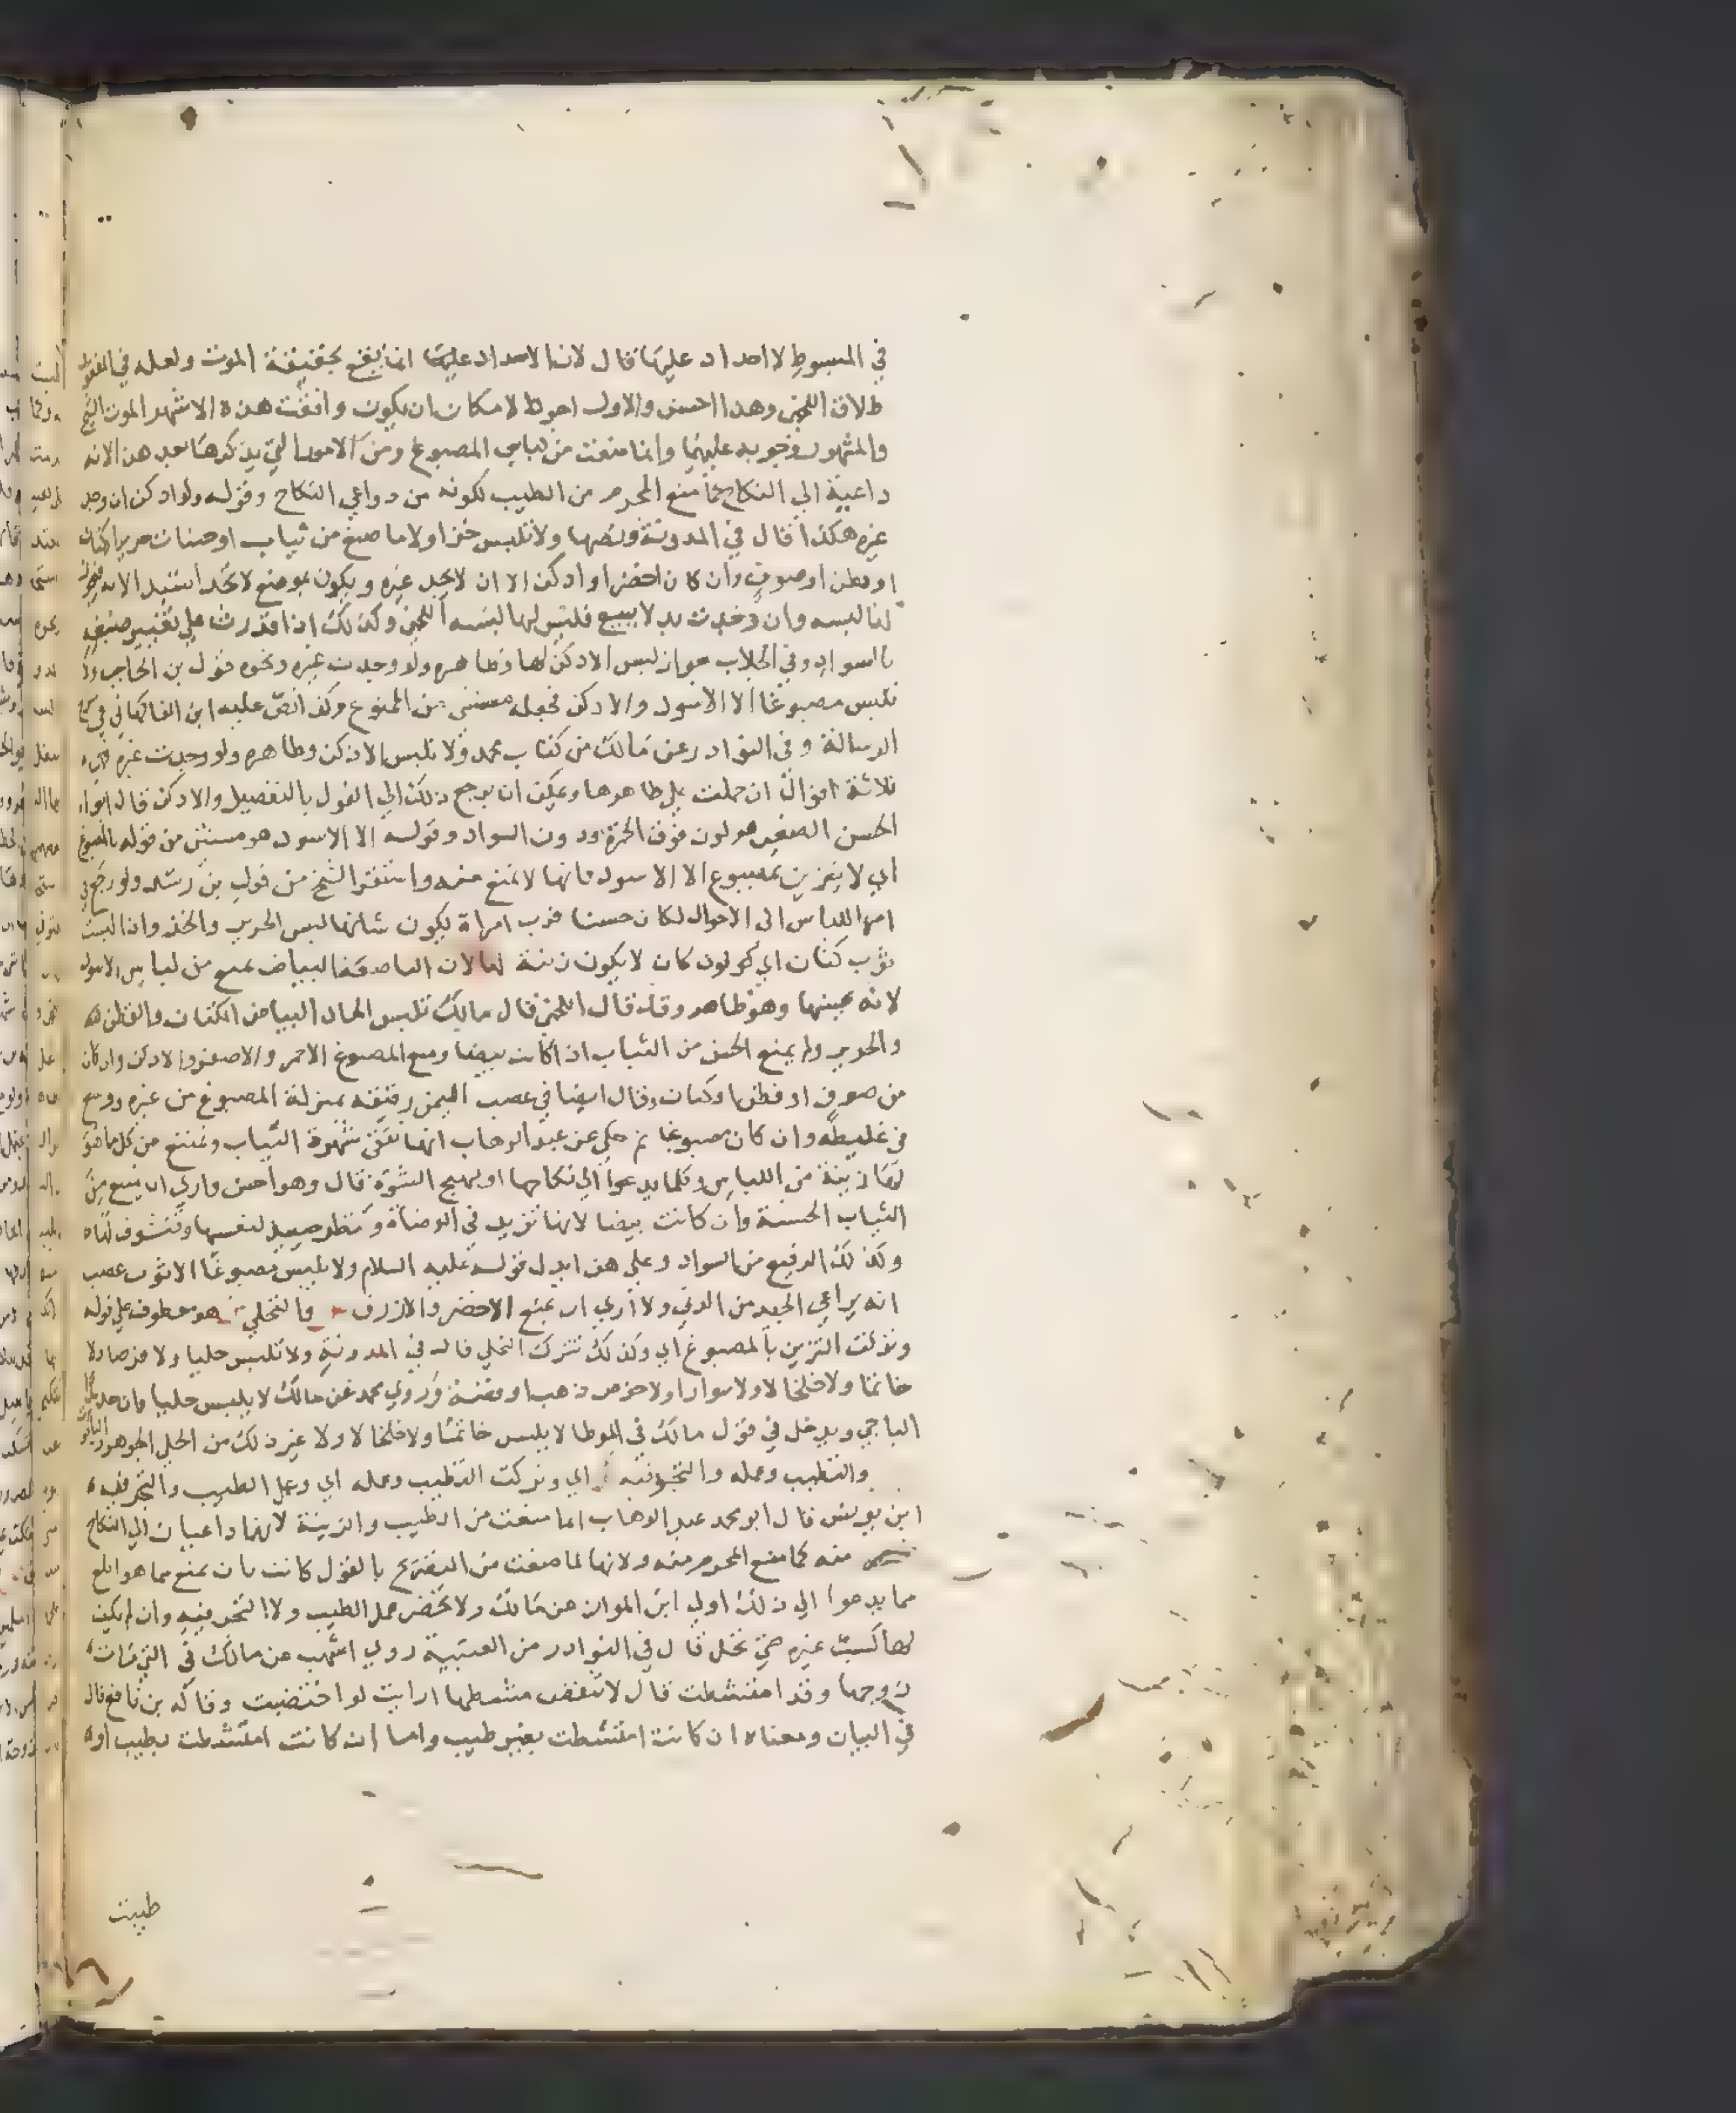 في المبسوط لا احداد عليها قال لان الاحداد عليها انما يقع بحقيقة الموت ولعله في المفقود
طلاق اللخمي وهذا احسن والاول احوط لامكان ان يكون وافقت هذه الاشهر الموت الشيخ
والمشهور وجوبه عليهما وانما منعت من لباس المصبوغ ومن الامور التي يذكرها بعد هذا لانه
داعية الي النكاح كما منع المحرم من الطيب لكونه من دواعي النكاح وقوله ولو ادكن ان وجد
غيره هكذا قال في المدونة ونصها ولا تلبس خزا ولا ما صبغ من ثياب او حرير او كتان
او قطن او صوف وان كان اخضر او ادكن الا ان لا يجد غيره ويكون بموضع لا تجد استبداله فيجوز
لها لبسه وان وجدت بدلا ببيع فليس لها لبسه اللخمي وكذلك اذا قدرت علي تغيير صبغه
بالسواد وفي الجلاب جواز لبس الادكن لها وظاهره ولو وجدت غيره ونحوه قول بن الحاجب ولا
تلبس مصبوغا الا الاسود والادكن فجعله مستثني من الممنوع وكذا نص عليه ابن الفاكهاني في شرح
الرسالة وفي النوادر عن مالك من كتاب محمد ولا تلبس الادكن وظاهره ولو وجدت غيره فهذه
ثلاثة اقوال ان حملت علي ظاهرها ويمكن ان يرجع ذلك الي القول بالتفصيل والادكن قال ابو
الحسن الصغير هو لون فوق الحمرة ودون السواد وقوله الا الاسود هو مستثني من قوله بالمصبوغ
اي لا يتزين بمصبوغ الا الاسود فانها لا تمنع منه واستقرا الشيخ من قول بن رشد ولو رجع في
امر اللباس الى الاحوال لكان حسنا فرب امراة يكون شانها لبس الحرير والخز واذا لبست
ثوب كتان اي كل لون كان لا يكون زينة لها لان الناصعة البياض تمنع من لباس الاسود
لانه يحبسها وهو ظاهر وقد قال اللخمي قال مالك تلبس الحاد البياض الكتان والقطن كله
والحرير ولم يمنع الحسن من الثياب اذا كانت بيضا ومنع المصبوغ الاحمر والاصفر والادكن وان كان
من صوف او قطن او كتان وقال ايضا في عصب اليمن رقيقه بمنزلة المصبوغ من غيره ووسع
في غليظه وان كان مصبوغا ثم حكي عن عبد الوهاب انها تتقي شهرة الثياب وتمتنع من كل ما هو
لها زينة من اللباس وكلما يدعوا الي نكاحها او يهيج الشهوة قال وهو احسن واري ان تمنع من
الثياب الحسنة وان كانت بيضا لانها تزيد في الوضاة وتنظر لنفسها وتتشوف لها
وكذلك الرفيع من السواد وعلي هذا يدل قوله عليه السلام ولا تلبس مصبوغا الا ثوب عصب
انه يراعي الجيد من الدني ولا اري ان تمنع الاخضر والازرق والتحلي هو معطوف علي قوله
وتركت التزين بالمصبوغ اي وكذلك تترك التحلي قال في المدونة ولا تلبس حليا ولا قرصا ولا
خاتما ولا خلخالا ولا سوارا ولا خرص ذهب او فضة وروي محمد عن مالك لا يلبس حليا وان حديد
الباجي ويدخل في قول مالك في الموطا لا يلبس خاتما ولا خلخالا ولا غير ذلك من الحلي الجوهر والياقوت
والتطيب وعمله والتجر فيه اي وتركت التطيب وعمله اي وعمل الطيب والتجر فيه
ابن يونس قال ابو محمد عبد الوهاب انما منعت من الطيب والزينة لانهما داعيان الي النكاح
منه كما منع المحرم منه ولانها لما منعت من التصريح بالقول كانت بان تمنع مما هو ابلغ
مما يدعوا الي ذلك اولي ابن المواز عن مالك ولا تحضر عمل الطيب ولا التجر فيه وان لم يكن
لها كسب غيره حتى تحل قال في النوادر من العتبية روي اشهب عن مالك في التي مات
زوجها وقد امتشطت قال لا تنقض مشطها ارايت لو اختضبت وقاله بن نافع قال
في البيان ومعناه ان كانت امتشطت بغير طيب واما ان كانت امتشطت بطيب او
طيبت